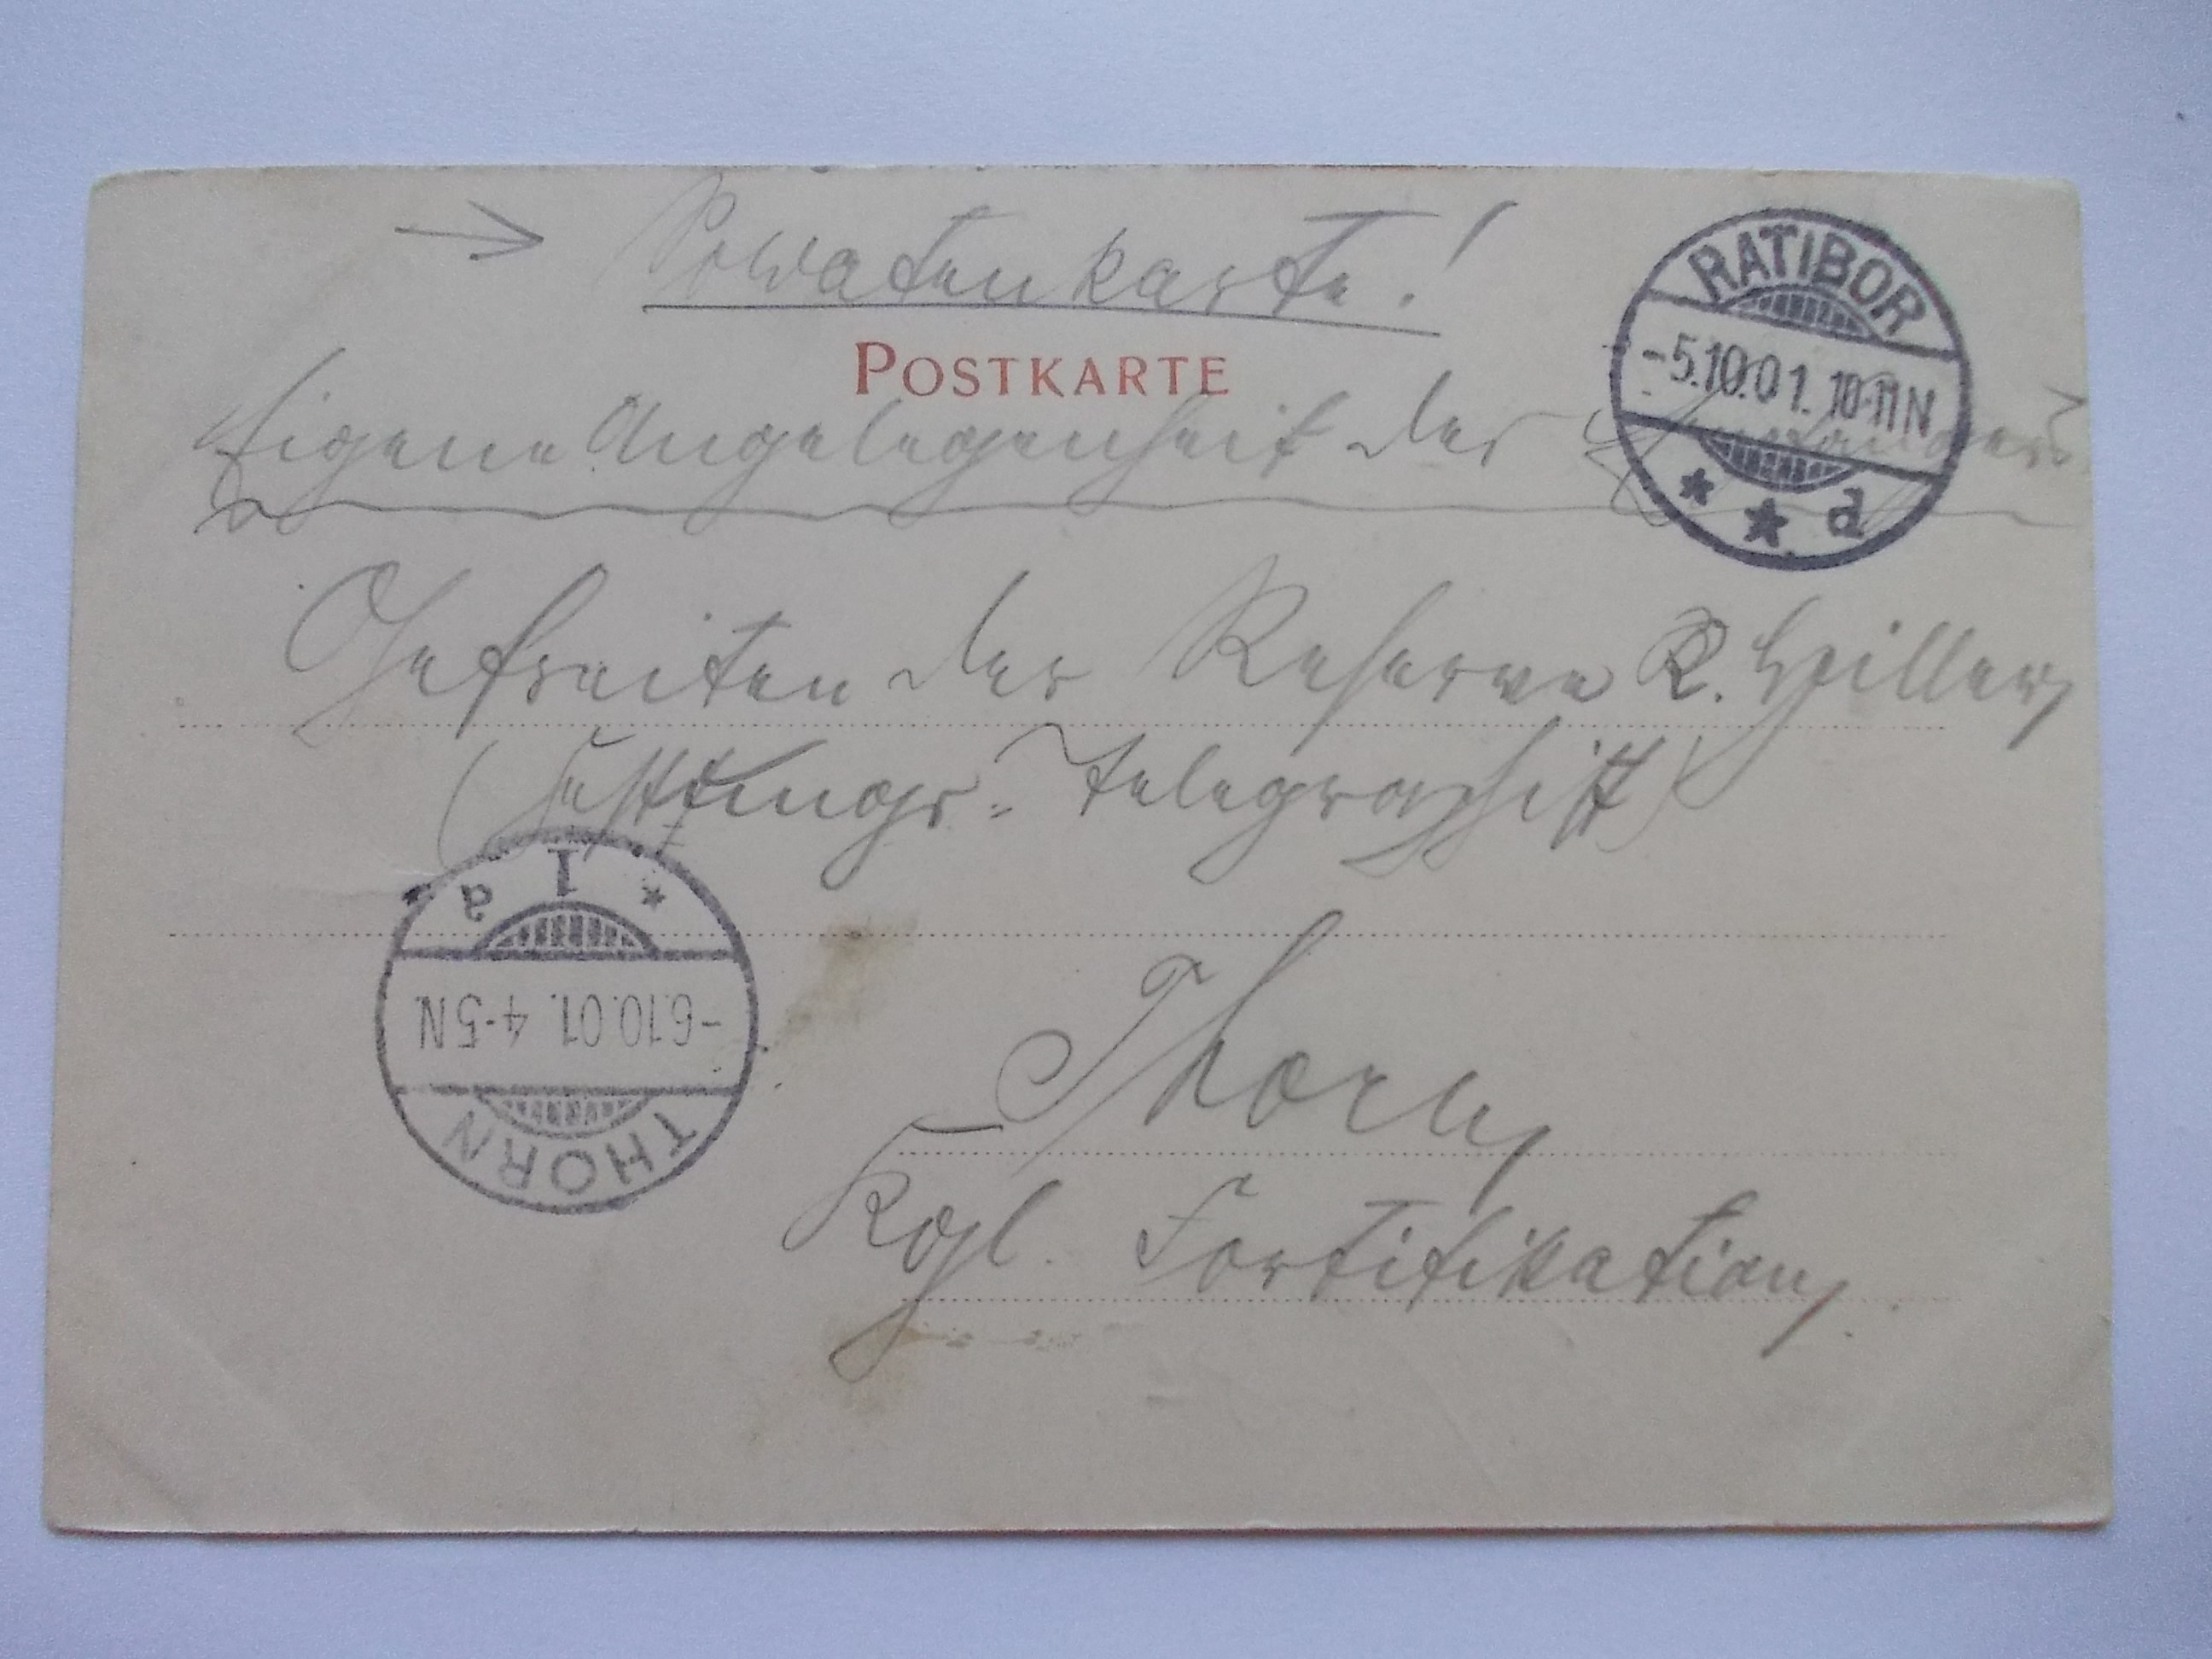 Soldatenkarte!
POSTKARTE
RATIBOR
-5.10.01. 10-11N
* * d
Eigene Angelegenheit des Empfängers
Gefreiten der Reserve R. Hiller
(Festungs-Telegraphist)
* 1 a
-6.10.01. 4-5N
THORN
Thorn
Kgl. Fortifikation.